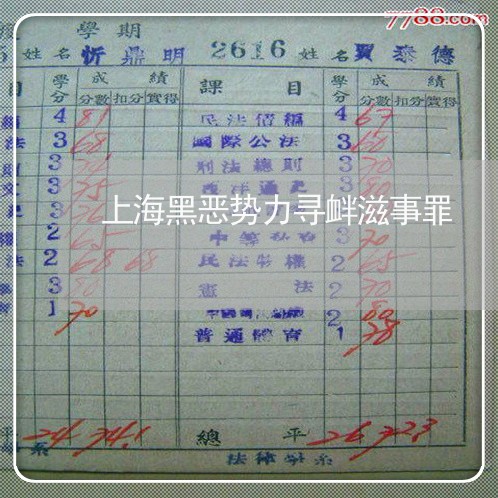 7788.com
學期
姓名 忻鼎明 2616 姓名 賈泰德
目 學分 成績 課目 學分 成績
分數 扣分 實得 分數 扣分 實得
4 81 民法債編 4 67
法 3 68 國際公法 3 60
3 刑法總則 3 70
3 75 西洋通史 3 80
上海黑恶势力寻衅滋事罪
2 65 3 70
法 2 68 68 民法物權 2 65
3 80 憲法 2 70
1 70 2 80
普通體育 1 78
24 74.1 總平 26 72.3
系 法律學系